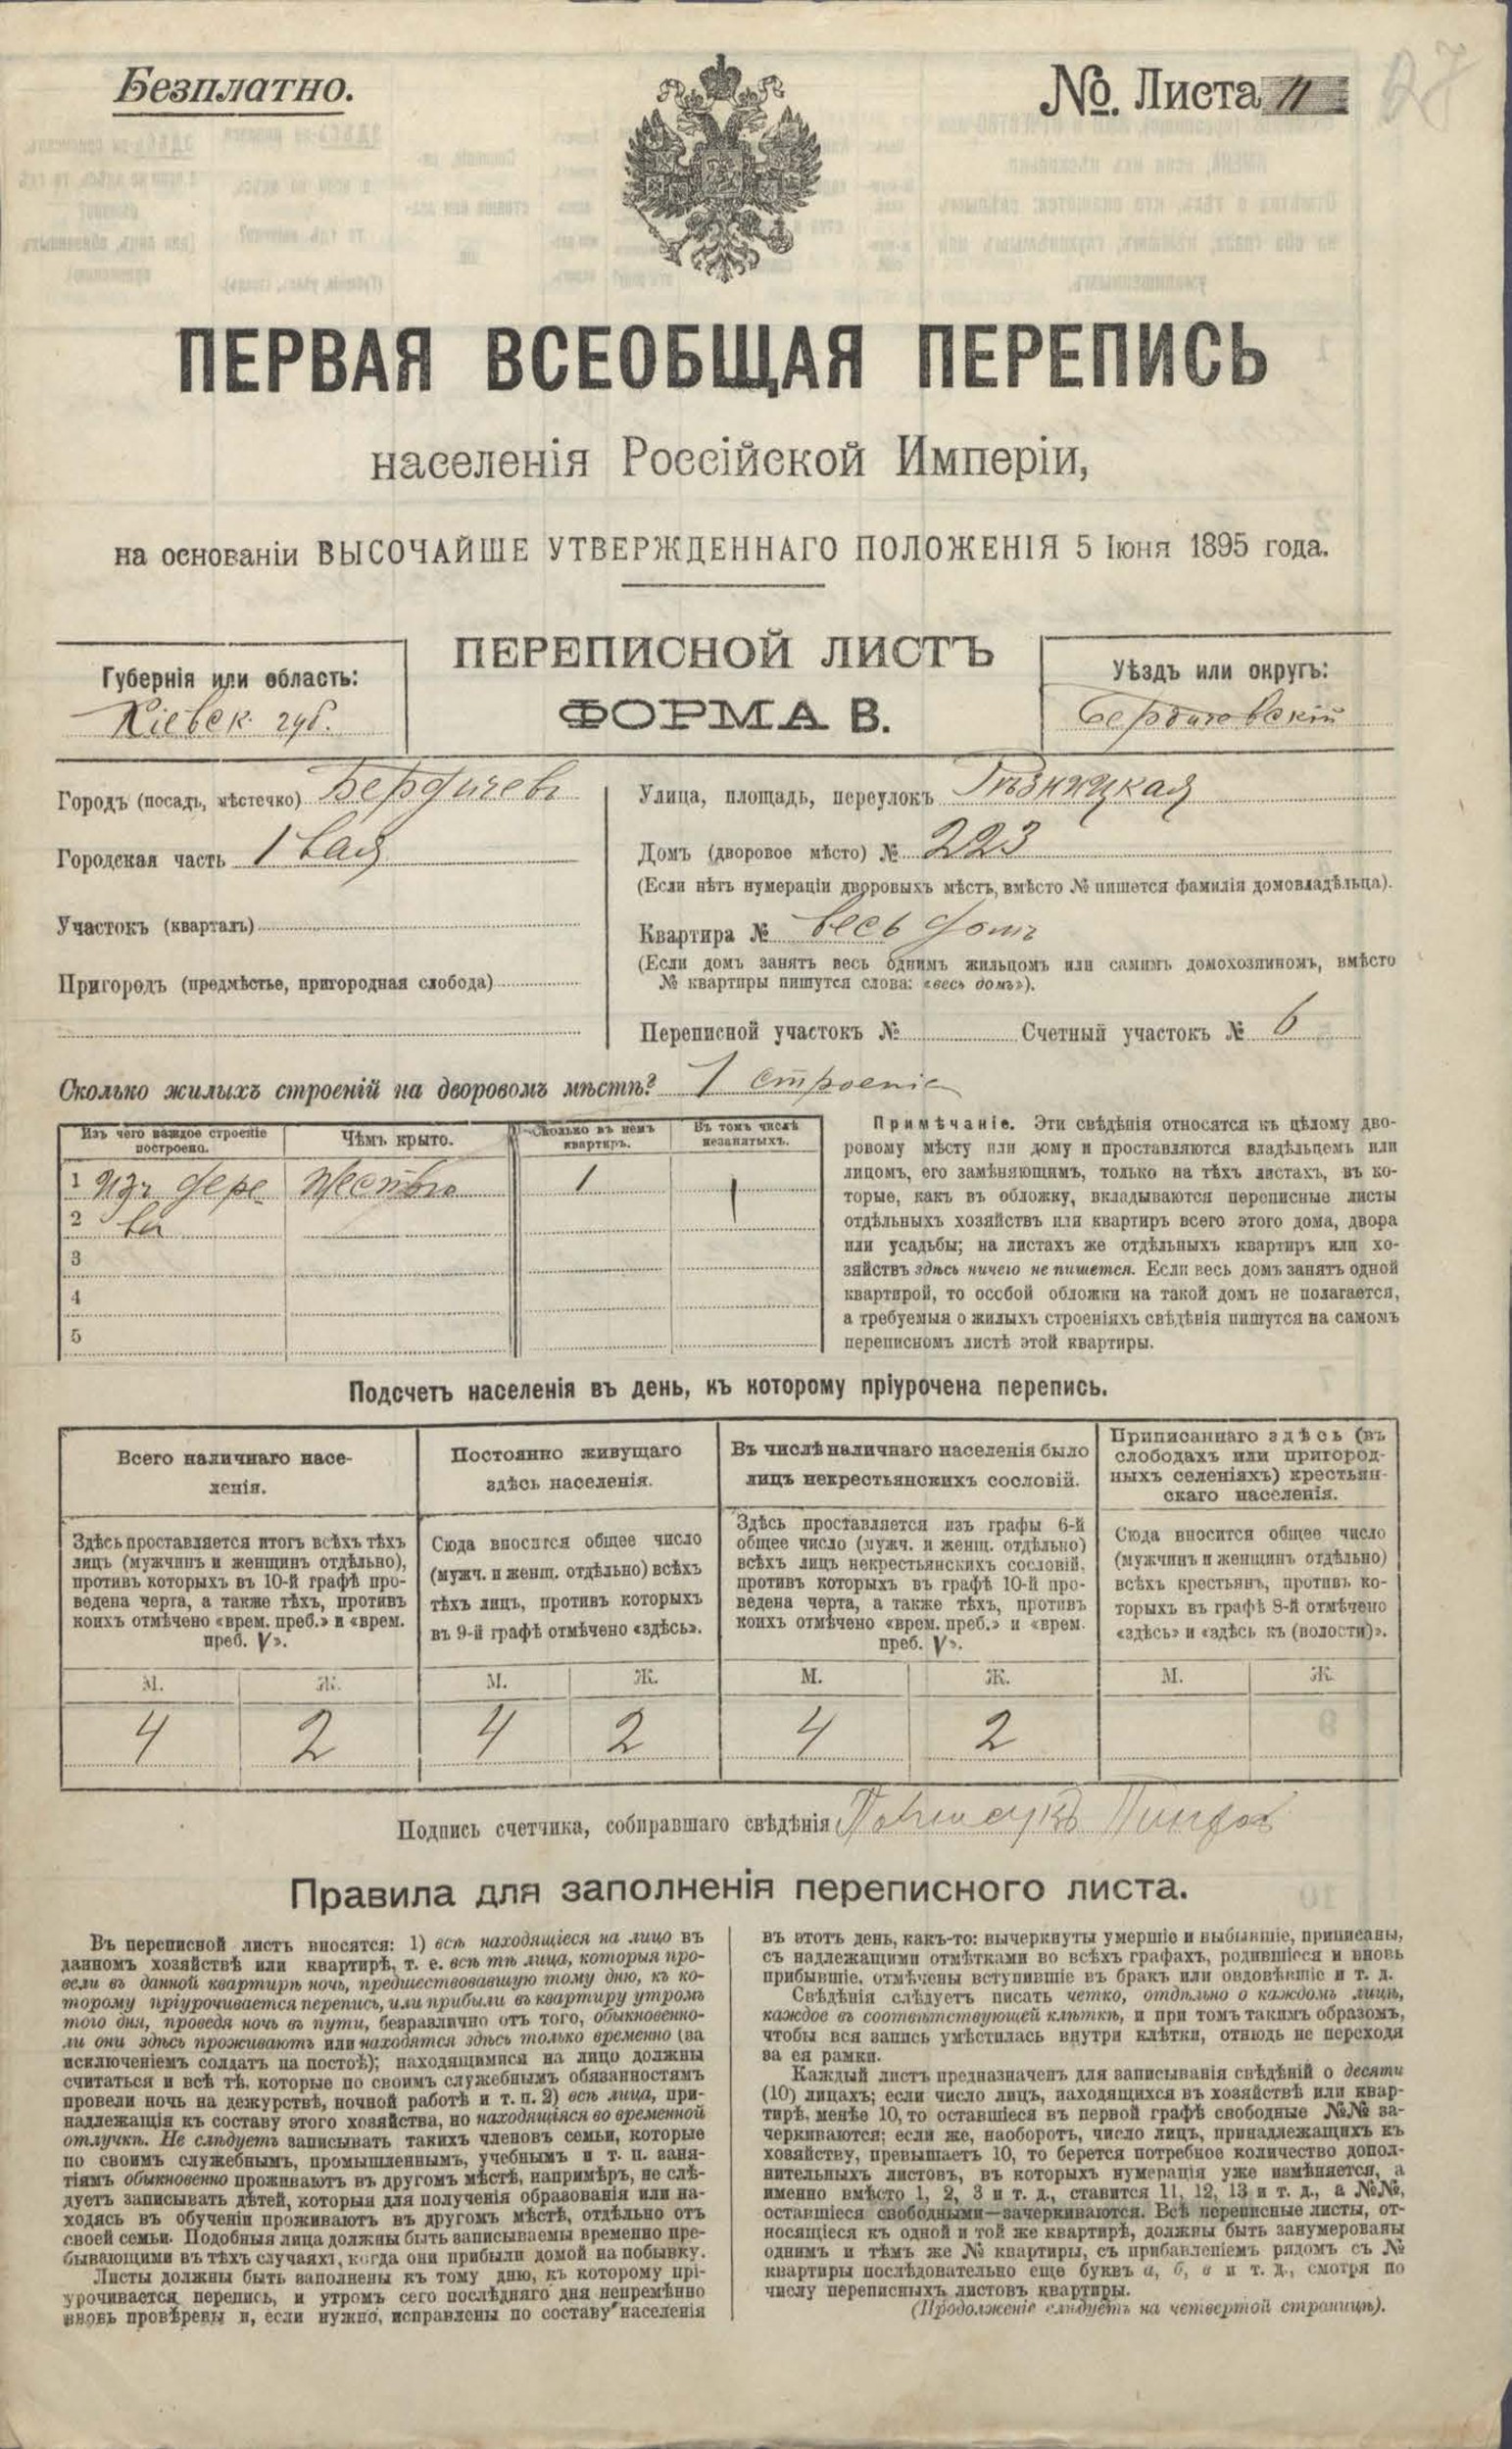 Безплатно.
№. Листа 11
27
ПЕРВАЯ ВСЕОБЩАЯ ПЕРЕПИСЬ
населенія Россійской Имперіи,
на основаніи ВЫСОЧАЙШЕ УТВЕРЖДЕННАГО ПОЛОЖЕНІЯ 5 Іюня 1895 года.
ПЕРЕПИСНОЙ ЛИСТЪ
ФОРМА В.
Губернія или область:
Кіевск. губ.
Уѣздъ или округъ:
Бердичевскій
Городъ (посадъ, мѣстечко) Бердичевъ
Городская часть 1 вая
Участокъ (кварталъ)
Пригородъ (предмѣстье, пригородная слобода)
Улица, площадь, переулокъ
Домъ (дворовое мѣсто) № 223
(Если нѣтъ нумераціи дворовыхъ мѣстъ, вмѣсто № пишется фамилія домовладѣльца).
Квартира № весь домъ
(Если домъ занятъ весь однимъ жильцомъ или самимъ домохозяиномъ, вмѣсто
№ квартиры пишутся слова: «весь домъ»).
Переписной участокъ № Счетный участокъ № 6
Сколько жилыхъ строеній на дворовомъ мѣстѣ? 1 строеніе
Изъ чего каждое строеніе
построено.
Чѣмъ крыто.
Сколько въ немъ
квартиръ.
Въ томъ числѣ
незанятыхъ.
1 Изъ дере- жестью 1
2 ва
3
4
5
Примѣчаніе. Эти свѣдѣнія относятся къ цѣлому дво-
ровому мѣсту или дому и проставляются владѣльцемъ или
лицомъ, его замѣняющимъ, только на тѣхъ листахъ, въ ко-
торые, какъ въ обложку, вкладываются переписные листы
отдѣльныхъ хозяйствъ или квартиръ всего этого дома, двора
или усадьбы; на листахъ же отдѣльныхъ квартиръ или хо-
зяйствъ здѣсь ничего не пишется. Если весь домъ занятъ одной
квартирой, то особой обложки на такой домъ не полагается,
а требуемыя о жилыхъ строеніяхъ свѣдѣнія пишутся на самомъ
переписномъ листѣ этой квартиры.
Подсчетъ населенія въ день, къ которому пріурочена перепись.
Всего наличнаго насе-
ленія.
Здѣсь проставляется итогъ всѣхъ тѣхъ
лицъ (мужчинъ и женщинъ отдѣльно),
противъ которыхъ въ 10-й графѣ про-
ведена черта, а также тѣхъ, противъ
коихъ отмѣчено «врем. преб.» и «врем.
преб. V».
Постоянно живущаго
здѣсь населенія.
Сюда вносится общее число
(мужч. и женщ. отдѣльно) всѣхъ
тѣхъ лицъ, противъ которыхъ
въ 9-й графѣ отмѣчено «здѣсь».
Въ числѣ наличнаго населенія было
лицъ некрестьянскихъ сословій.
Здѣсь проставляется изъ графы 6-й
общее число (мужч. и женщ. отдѣльно)
всѣхъ лицъ некрестьянскихъ сословій,
противъ которыхъ въ графѣ 10-й про-
ведена черта, а также тѣхъ, противъ
коихъ отмѣчено «врем. преб.» и «врем.
преб. V».
Приписаннаго здѣсь (въ
слободахъ или пригород-
ныхъ селеніяхъ) крестьян-
скаго населенія.
Сюда вносится общее число
(мужчинъ и женщинъ отдѣльно)
всѣхъ крестьянъ, противъ ко-
торыхъ въ графѣ 8-й отмѣчено
«здѣсь» и «здѣсь къ (волости)».
М. Ж. М. Ж. М. Ж. М. Ж.
4 2 4 2 4 2
Подпись счетчика, собиравшаго свѣдѣнія
Правила для заполненія переписного листа.
Въ переписной листъ вносятся: 1) всѣ находящіеся на лицо въ
данномъ хозяйствѣ или квартирѣ, т. е. всѣ тѣ лица, которыя про-
вели въ данной квартирѣ ночь, предшествовавшую тому дню, къ ко-
торому пріурочивается перепись, или прибыли въ квартиру утромъ
того дня, проведя ночь въ пути, безразлично отъ того, обыкновенно-
ли они здѣсь проживаютъ или находятся здѣсь только временно (за
исключеніемъ солдатъ на постоѣ); находящимися на лицо должны
считаться и всѣ тѣ, которые по своимъ служебнымъ обязанностямъ
провели ночь на дежурствѣ, ночной работѣ и т. п. 2) всѣ лица, при-
надлежащія къ составу этого хозяйства, но находящіяся во временной
отлучкѣ. Не слѣдуетъ записывать такихъ членовъ семьи, которые
по своимъ служебнымъ, промышленнымъ, учебнымъ и т. п. заня-
тіямъ обыкновенно проживаютъ въ другомъ мѣстѣ, напримѣръ, не слѣ-
дуетъ записывать дѣтей, которыя для полученія образованія или на-
ходясь въ обученіи проживаютъ въ другомъ мѣстѣ, отдѣльно отъ
своей семьи. Подобныя лица должны быть записываемы временно пре-
бывающими въ тѣхъ случаяхъ, когда они прибыли домой на побывку.
Листы должны быть заполнены къ тому дню, къ которому прі-
урочивается перепись, и утромъ сего послѣдняго дня непремѣнно
вновь провѣрены и, если нужно, исправлены по составу населенія
въ этотъ день, какъ-то: вычеркнуты умершіе и выбывшіе, приписаны,
съ надлежащими отмѣтками во всѣхъ графахъ, родившіеся и вновь
прибывшіе, отмѣчены вступившіе въ бракъ или овдовѣвшіе и т. д.
Свѣдѣнія слѣдуетъ писать четко, отдѣльно о каждомъ лицѣ,
каждое въ соотвѣтствующей клѣткѣ, и при томъ такимъ образомъ,
чтобы вся запись умѣстилась внутри клѣтки, отнюдь не переходя
за ея рамки.
Каждый листъ предназначенъ для записыванія свѣдѣній о десяти
(10) лицахъ; если число лицъ, находящихся въ хозяйствѣ или квар-
тирѣ, менѣе 10, то оставшіеся въ первой графѣ свободные №№ за-
черкиваются; если же, наоборотъ, число лицъ, принадлежащихъ къ
хозяйству, превышаетъ 10, то берется потребное количество допол-
нительныхъ листовъ, въ которыхъ нумерація уже измѣняется, а
именно вмѣсто 1, 2, 3 и т. д., ставится 11, 12, 13 и т. д., а №№,
оставшіеся свободными—зачеркиваются. Всѣ переписные листы, от-
носящіеся къ одной и той же квартирѣ, должны быть занумерованы
однимъ и тѣмъ же № квартиры, съ прибавленіемъ рядомъ съ №
квартиры послѣдовательно еще буквъ а, б, в и т. д., смотря по
числу переписныхъ листовъ квартиры.
(Продолженіе слѣдуетъ на четвертой страницѣ).